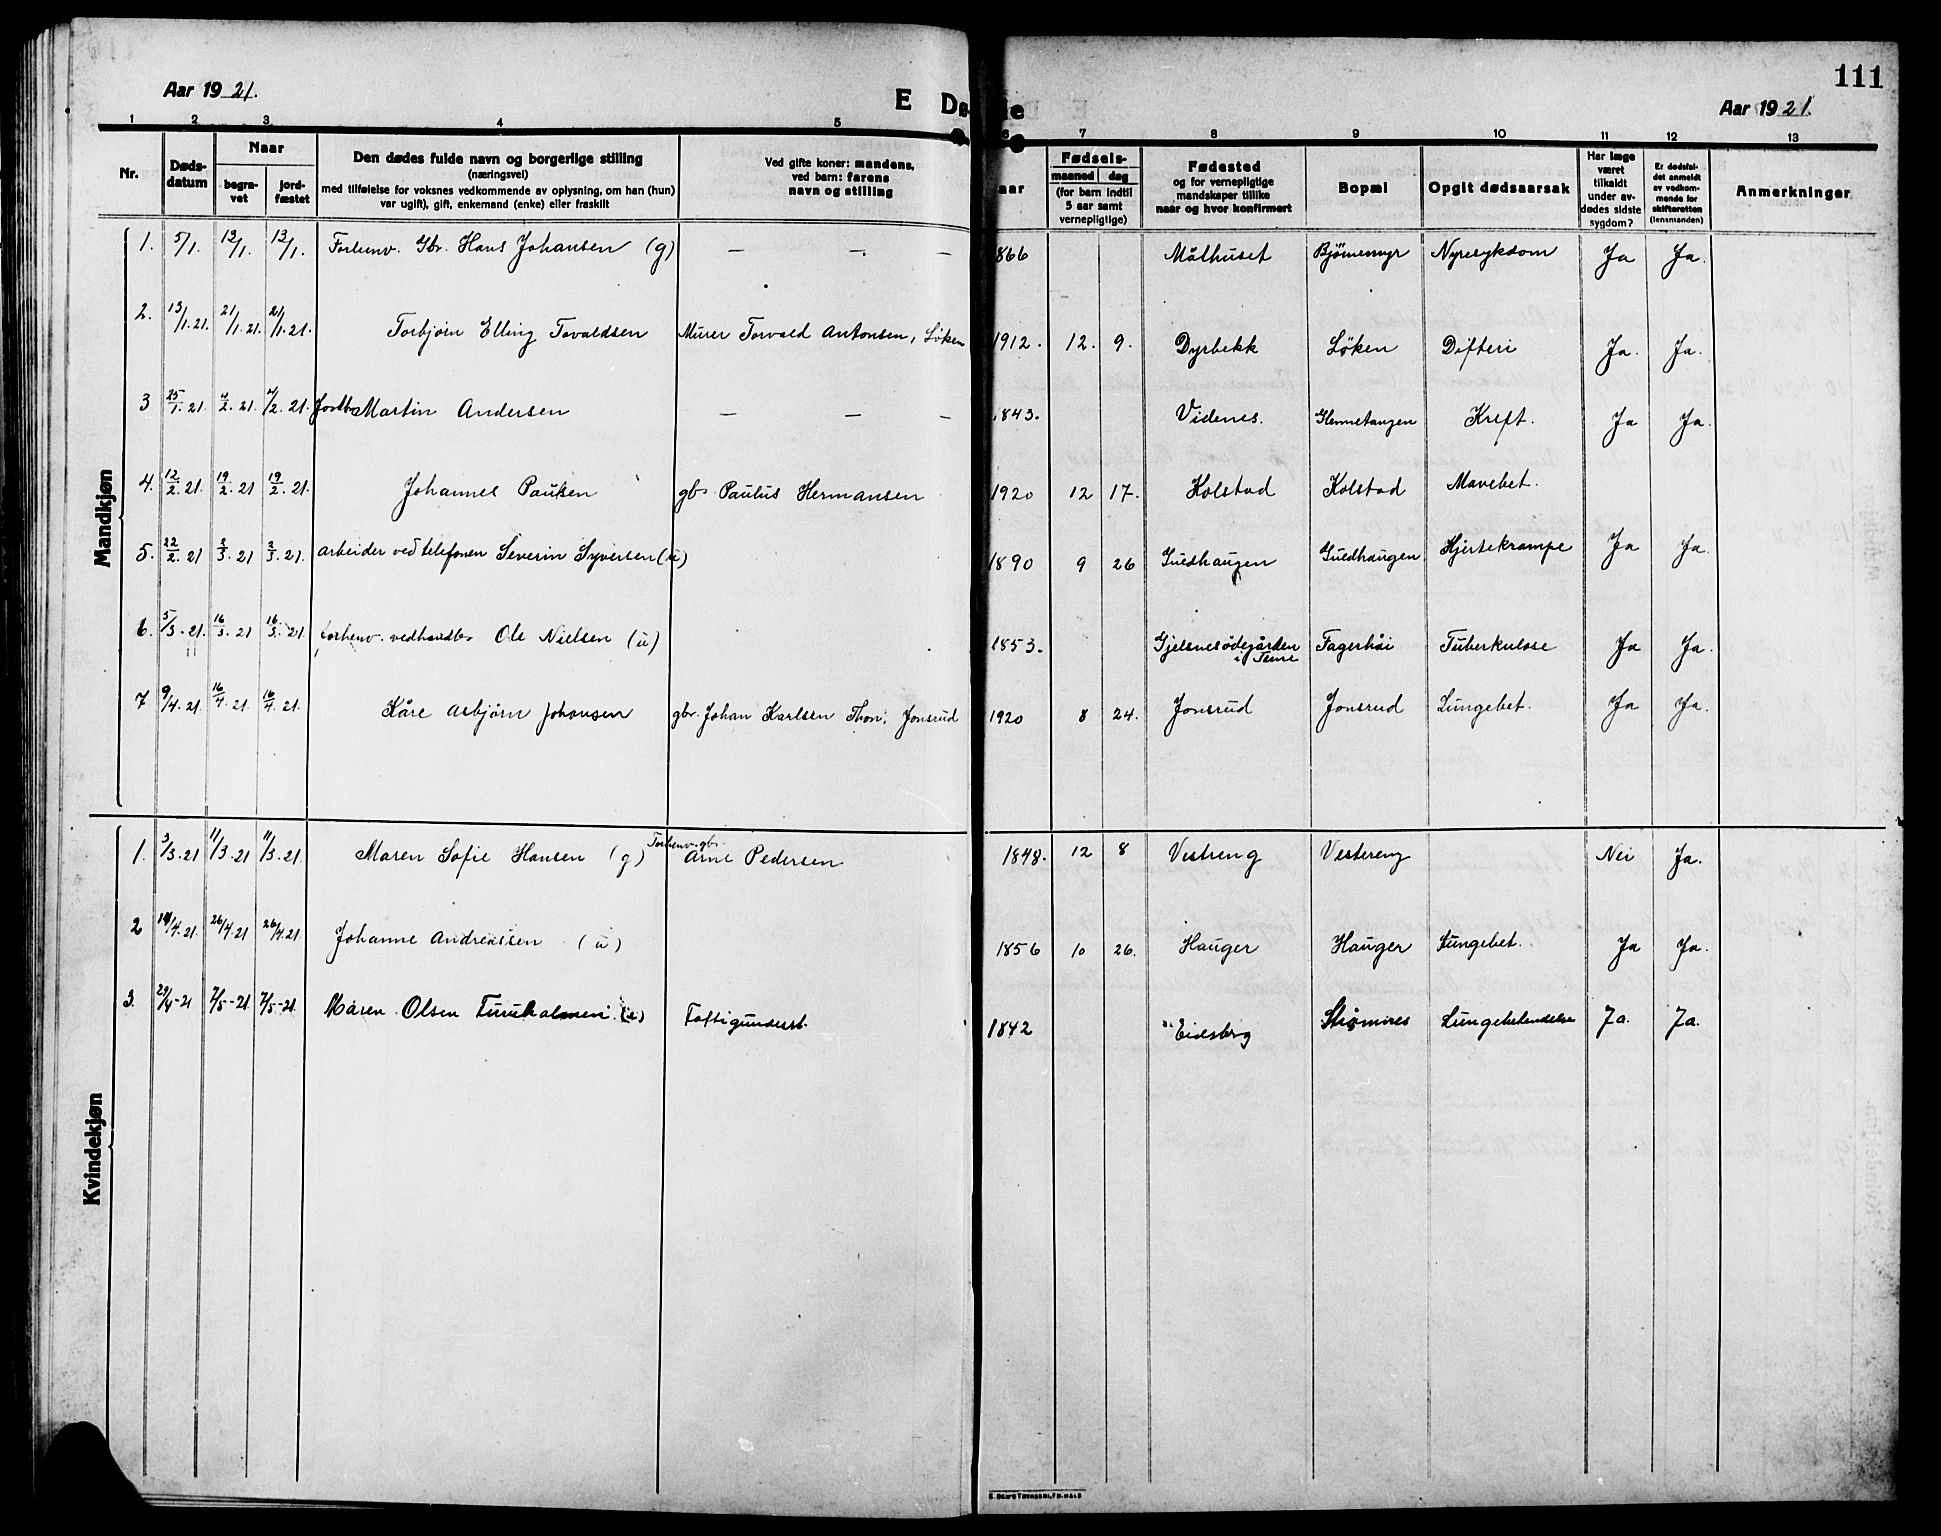 Aar 1921.
E Dø de
111
Aar 1921.
1 2 3 4 5 6 7 8 9 10 11 12 13
Nr.
Døds-
datum
Naar
begra-
vet
jord-
fæstet
Den dødes fulde navn og borgerlige stilling
(næringsvei)
med tilføielse for voksnes vedkommende av oplysning, om han (hun)
var ugift), gift, enkemand (enke) eller fraskilt
Ved gifte koner: mandens,
ved barn: farens
navn og stilling
aar
Fødsels-
maaned dag
(for barn indtil
5 aar samt
vernepligtige)
Fødested
og for vernepligtige
mandskaper tillike
naar og hvor konfirmert
Bopæl
Opgit dødsaarsak
Har læge
været
tilkaldt
under av-
dødes sidste
sygdom?
Er dødsfal-
det anmeldt
av vedkom-
mende for
skifteretten
(lensmanden)
Anmerkninger
Mandkjøn
1. 5/1. 12/1. 13/1. Forhenv. Gbr. Hans Johansen (g) — — — 866 Målhuset Bjørnemyr Nyresykdom Ja Ja.
2. 13/1.21. 21/1.21. 21/1.21. Torbjørn Elling Tovaldsen Murer Torvald Antonsen, Løken 1912. 12. 9. Dyrbekk Løken Difteri Ja. Ja.
3 25/1.21. 4/2.21. 4/2.21. Martin Andersen — — — 1843. Videnes. Glennetangen Kreft. Ja Ja.
4. 12/2.21. 19/2.21 19/2.21. Johannes Paulsen gbr. Paulus Hermansen 1920 12 17. Kolstad Kolstad Mavebet.
5. 22/2.21 2/3.21 2/3.21. arbeider ved telefonen Severin Syversen (u) 1890 9 26 Guldhaugen Guldhaugen Hjertekrampe Ja Ja.
6. 5/3.21. 16/3.21 16/3.21 forhenv. vedhandler Ole Nielsen (u) 1853. Gjelsnesødegården
i Fagerhøi Tuberkulose Ja Ja.
7 9/4.21 16/4.21. 16/4.21. Kåre Asbjørn Johansen gbr. Johan Karlsen Thon, Jonsrud 1920 8 24. Jonsrud Jonsrud Lungebet. Ja Ja.
Kvindekjøn
1. 3/3.21 11/3.21 11/3.21. Maren Sofie Hansen (g) Forhenv. gbr.
Arne Pedersen 1848. 12 8 Vestreng Vestereng Nei Ja.
2 19/4.21. 26/4.21 26/4.21 Johanne Andreassen (u) 1856 10 26. Hauger Hauger Lungebet. Ja Ja.
3. 29/4-21 7/5-21 7/5-21. Maren Olsen Furuholmen (e) 1842 Eidsberg Lungebetendelse Ja. Ja.